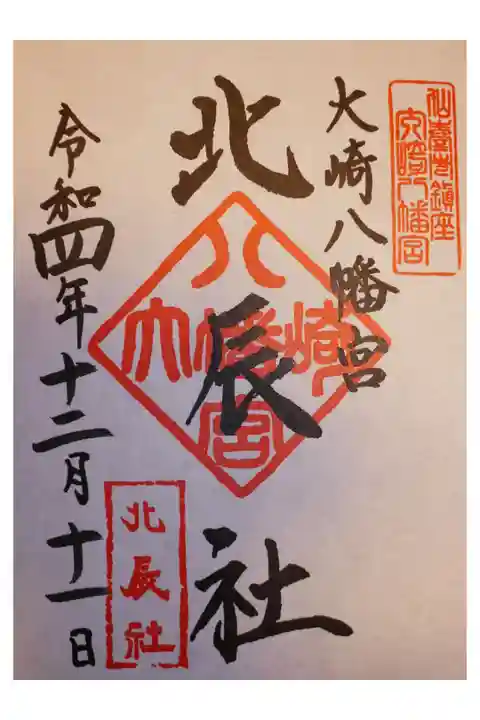 仙臺市鎮座
大崎八幡宮
大崎八幡宮
北辰社
八
大幡崎
宮
北辰社
令和四年十二月十一日